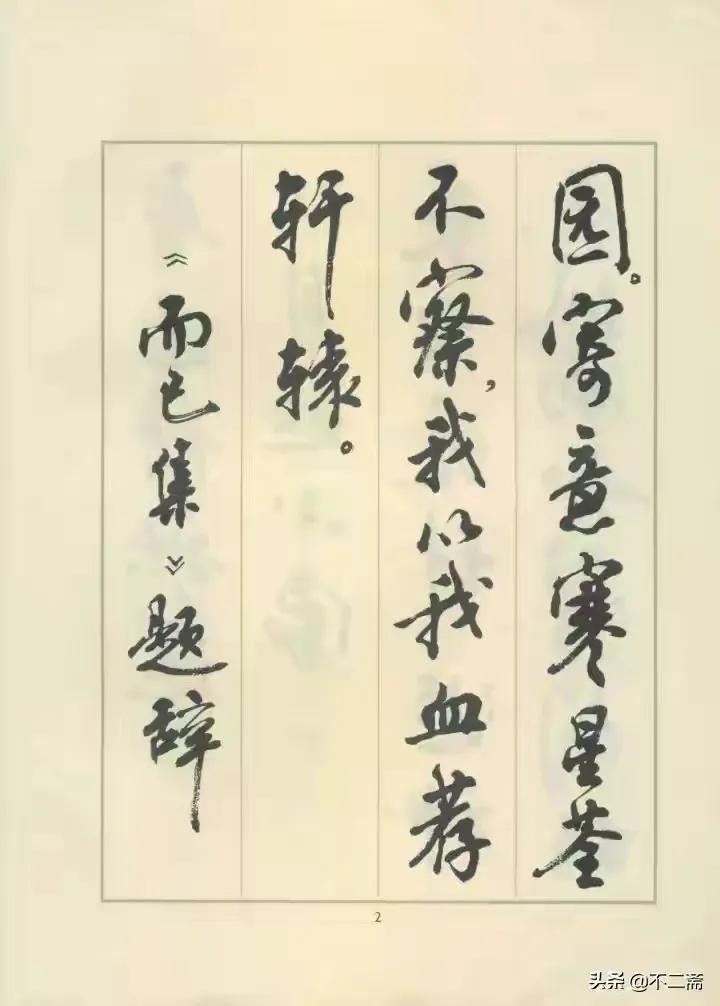 园。寄意寒星荃
不察，我以我血荐
轩辕。
《而已集》题辞
2
头条 @不二斋